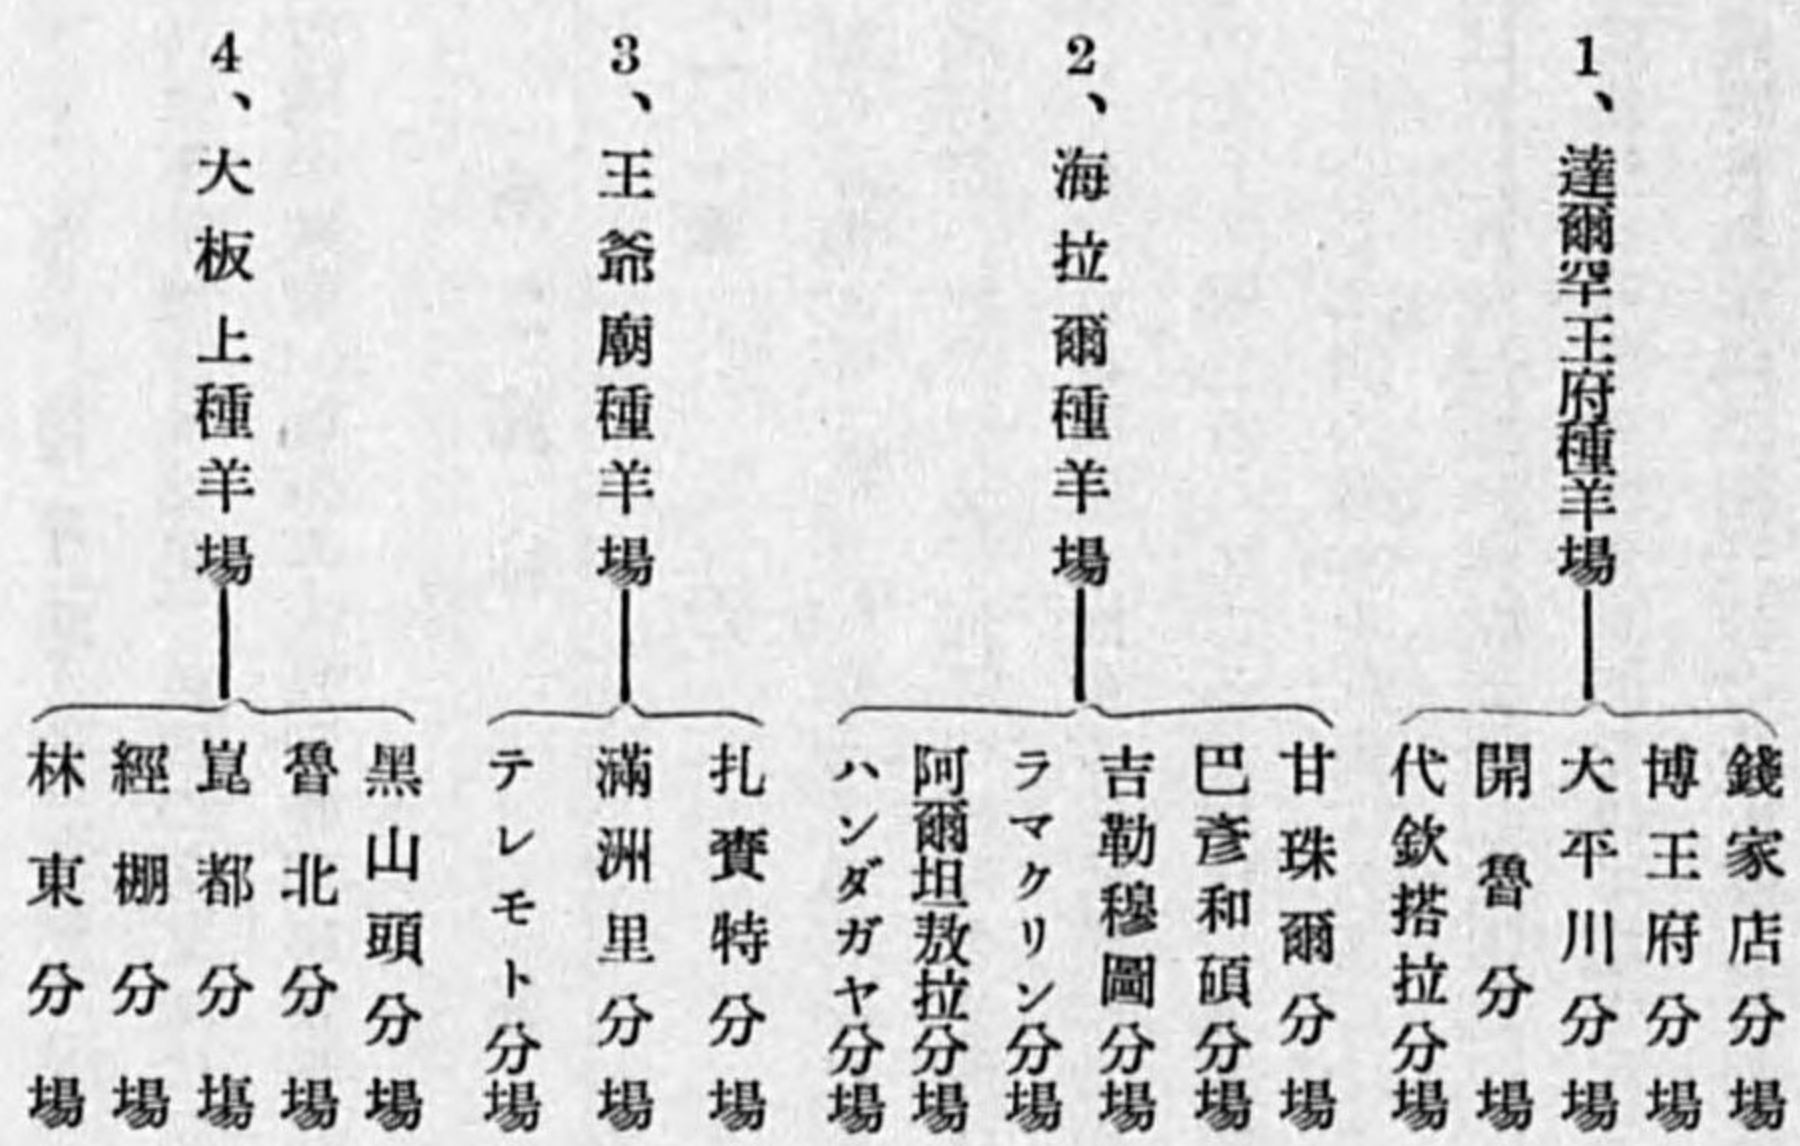 1、達爾罕王府種羊場
錢家店分場
博王府分場
大平川分場
開魯分場
代欽搭拉分場
2、海拉爾種羊場
甘珠爾分場
巴彥和碩分場
吉勒穆圖分場
ラマクリン分場
阿爾坦敖拉分場
ハンダガヤ分場
3、王爺廟種羊場
扎賚特分場
滿洲里分場
テレモト分場
4、大板上種羊場
黑山頭分場
魯北分場
崑都分塲
經棚分場
林東分場